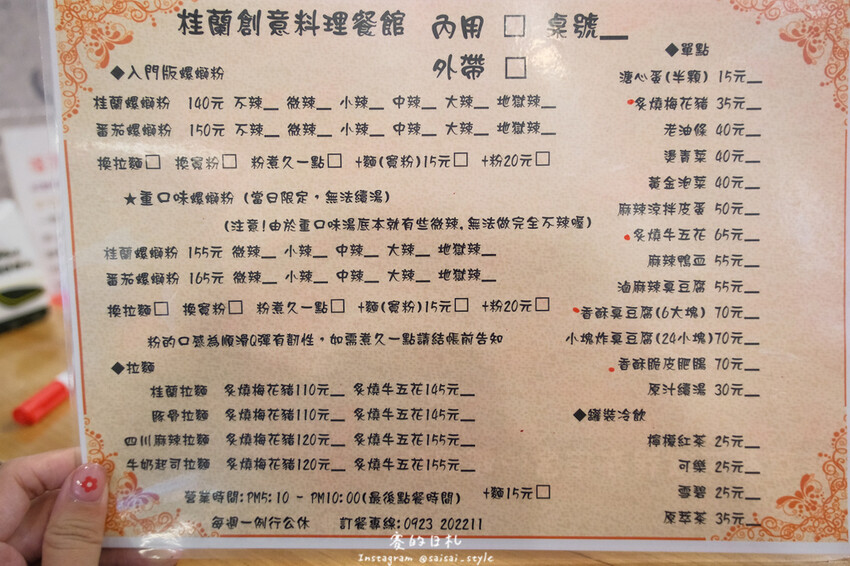 桂蘭創意料理餐館 內用 □ 桌號__
外帶 □
◆入門版螺螄粉
桂蘭螺螄粉 140元 不辣__ 微辣__ 小辣__ 中辣__ 大辣__ 地獄辣__
番茄螺螄粉 150元 不辣__ 微辣__ 小辣__ 中辣__ 大辣__ 地獄辣__
換拉麵□ 換寬粉□ 粉煮久一點□ +麵(寬粉)15元□ +粉20元□
★重口味螺螄粉 (當日限定，無法續湯)
(注意!由於重口味湯底本就有些微辣,無法做完全不辣喔)
桂蘭螺螄粉 155元 微辣__ 小辣__ 中辣__ 大辣__ 地獄辣__
番茄螺螄粉 165元 微辣__ 小辣__ 中辣__ 大辣__ 地獄辣__
換拉麵□ 換寬粉□ 粉煮久一點□ +麵(寬粉)15元□ +粉20元□
粉的口感為順滑Q彈有韌性，如需煮久一點請結帳前告知
◆拉麵
桂蘭拉麵 炙燒梅花豬110元__ 炙燒牛五花145元__
豚骨拉麵 炙燒梅花豬110元__ 炙燒牛五花145元__
四川麻辣拉麵 炙燒梅花豬120元__ 炙燒牛五花155元__
牛奶起司拉麵 炙燒梅花豬120元__ 炙燒牛五花155元__
營業時間:PM5:10 - PM10:00(最後點餐時間) +麵15元□
每週一例行公休 訂餐專線:0923 202211
◆單點
溏心蛋(半顆) 15元__
炙燒梅花豬 35元__
老油條 40元__
燙青菜 40元__
黃金泡菜 40元__
麻辣涼拌皮蛋 50元__
炙燒牛五花 65元__
麻辣鴨血 55元__
滷麻辣臭豆腐 55元__
香酥臭豆腐(6大塊) 70元__
小塊炸臭豆腐(24小塊)70元__
香酥脆皮肥腸 70元__
原汁續湯 30元__
◆罐裝冷飲
檸檬紅茶 25元__
可樂 25元__
雪碧 25元__
原萃茶 35元__
賽的日札
Instagram @saisai_style